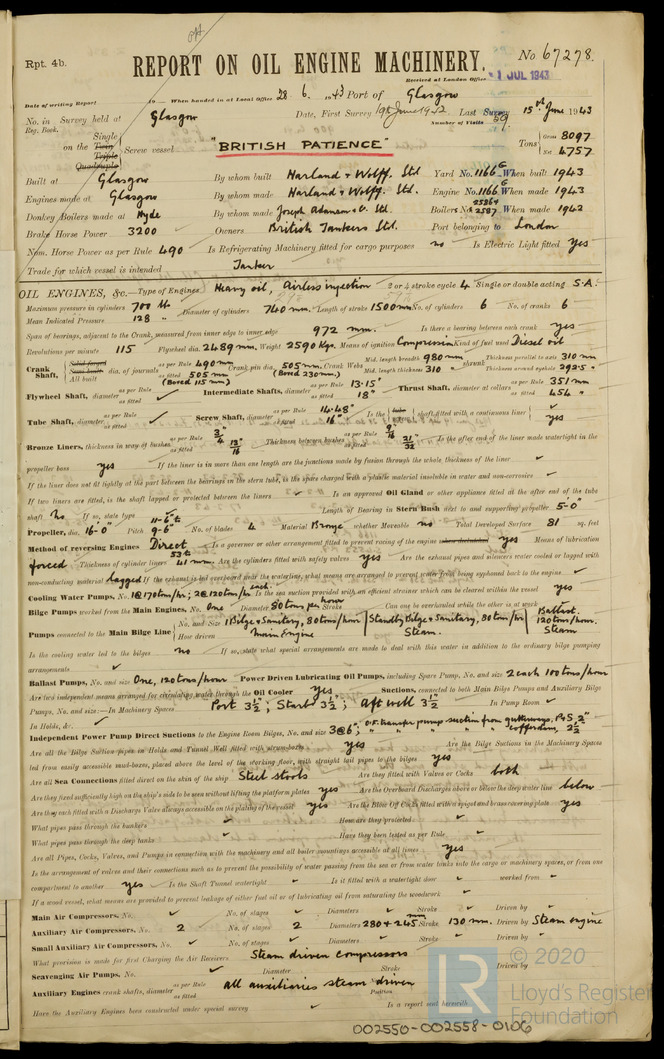 Rpt. 4b.
REPORT ON OIL ENGINE MACHINERY.
No 67278.
Received at London Office 1 JUL 1943
Date of writing Report to When handed in at Local Office 28. 6. 1943 Port of Glasgow
No. in Survey held at Glasgow Date, First Survey 19th June 1942 Last Survey 15th June 1943
Reg. Book. Number of Visits 59
Single
on the Twin Triple Quadruple Screw vessel "BRITISH PATIENCE" Tons Gross 8097 Net 4757
Built at Glasgow By whom built Harland & Wolff. Ltd Yard No. 1166G When built 1943
Engines made at Glasgow By whom made Harland & Wolff. Ltd. Engine No. 1166G When made 1943
Donkey Boilers made at Hyde By whom made Joseph Adamson & Co. Ltd. Boilers No. 2587 When made 1942
Brake Horse Power 3200 Owners British Tankers Ltd. Port belonging to London
Nom. Horse Power as per Rule 490 Is Refrigerating Machinery fitted for cargo purposes no Is Electric Light fitted yes
Trade for which vessel is intended Tanker
OIL ENGINES, &c.—Type of Engines Heavy oil, Airless injection 2 or 4 stroke cycle 4 Single or double acting S.A.
Maximum pressure in cylinders 700 lb Diameter of cylinders 740 mm. Length of stroke 1500 mm No. of cylinders 6 No. of cranks 6
Mean Indicated Pressure 128 "
Span of bearings, adjacent to the Crank, measured from inner edge to inner edge 972 mm. Is there a bearing between each crank yes
Revolutions per minute 115 Flywheel dia. 2489 mm. Weight 2590 Kgs. Means of ignition Compression Kind of fuel used Diesel oil
Crank Shaft, Solid forged Semi built All built dia. of journals as per Rule 490 mm as fitted 505 mm (Bored 115 mm) Crank pin dia. 505 mm. (Bored 230 mm.) Crank Webs Mid. length breadth 980 mm Mid. length thickness 310 " shrunk Thickness parallel to axis 310 mm Thickness around eyehole 292.5 "
Flywheel Shaft, diameter as per Rule as fitted Intermediate Shafts, diameter as per Rule 13.15" as fitted 18" Thrust Shaft, diameter at collars as per Rule 351 mm as fitted 454 "
Tube Shaft, diameter as per Rule as fitted Screw Shaft, diameter as per Rule 14.48" as fitted 16" Is the tube screw shaft fitted with a continuous liner yes
Bronze Liners, thickness in way of bushes as per Rule 3/4" as fitted 13/16" Thickness between bushes as per Rule 9/16" as fitted 21/32" Is the after end of the liner made watertight in the
propeller boss yes If the liner is in more than one length are the junctions made by fusion through the whole thickness of the liner
If the liner does not fit tightly at the part between the bearings in the stern tube, is the space charged with a plastic material insoluble in water and non-corrosive
If two liners are fitted, is the shaft lapped or protected between the liners Is an approved Oil Gland or other appliance fitted at the after end of the tube
shaft no If so, state type Length of Bearing in Stern Bush next to and supporting propeller 5'-0"
Propeller, dia. 16'-0" Pitch 11'-6" 9'-6" No. of blades 4 Material Bronze whether Moveable no Total Developed Surface 81 sq. feet
Method of reversing Engines Direct Is a governor or other arrangement fitted to prevent racing of the engine when declutched yes Means of lubrication
forced Thickness of cylinder liners 53 & 41 mm. Are the cylinders fitted with safety valves yes Are the exhaust pipes and silencers water cooled or lagged with
non-conducting material lagged If the exhaust is led overboard near the waterline, what means are arranged to prevent water from being syphoned back to the engine
Cooling Water Pumps, No. 1@170 tons/hr; 2@120 tons/hr each. Is the sea suction provided with an efficient strainer which can be cleared within the vessel yes
Bilge Pumps worked from the Main Engines, No. One Diameter 80 tons per hour Stroke Can one be overhauled while the other is at work
Pumps connected to the Main Bilge Line No. and Size 1 Bilge & Sanitary, 80 tons/hour Standby Bilge & Sanitary, 80 tons/hr Ballast. 120 tons/hour.
How driven Main Engine Steam. Steam
Is the cooling water led to the bilges no If so, state what special arrangements are made to deal with this water in addition to the ordinary bilge pumping
arrangements
Ballast Pumps, No. and size One, 120 tons/hour Power Driven Lubricating Oil Pumps, including Spare Pump, No. and size 2 each 100 tons/hour
Are two independent means arranged for circulating water through the Oil Cooler yes Suctions, connected to both Main Bilge Pumps and Auxiliary Bilge
Pumps, No. and size:—In Machinery Spaces Port 3½"; Starbd 3½"; aft well 3½ In Pump Room
In Holds, &c.
Independent Power Pump Direct Suctions to the Engine Room Bilges, No. and size 3@6"; O.F. transfer pump suction from gutterways, P&S 2" " " " " cofferdam, 2½
Are all the bilge Suction pipes in Holds and Tunnel Well fitted with strum-boxes yes Are the Bilge Suctions in the Machinery Spaces
led from easily accessible mud-boxes, placed above the level of the working floor, with straight tail pipes to the bilges yes
Are all Sea Connections fitted direct on the skin of the ship Steel stools Are they fitted with Valves or Cocks both
Are they fixed sufficiently high on the ship's side to be seen without lifting the platform plates yes Are the Overboard Discharges above or below the deep water line below
Are they each fitted with a Discharge Valve always accessible on the plating of the vessel yes Are the Blow Off Cocks fitted with a spigot and brass covering plate yes
What pipes pass through the bunkers How are they protected
What pipes pass through the deep tanks Have they been tested as per Rule
Are all Pipes, Cocks, Valves, and Pumps in connection with the machinery and all boiler mountings accessible at all times yes
Is the arrangement of valves and their connections such as to prevent the possibility of water passing from the sea or from water tanks into the cargo or machinery spaces, or from one
compartment to another yes Is the Shaft Tunnel watertight Is it fitted with a watertight door worked from
If a wood vessel, what means are provided to prevent leakage of either fuel oil or of lubricating oil from saturating the woodwork
Main Air Compressors, No. No. of stages Diameters Stroke Driven by
Auxiliary Air Compressors, No. 2 No. of stages 2 Diameters 280 & 245 mm Stroke 130 mm. Driven by Steam engine
Small Auxiliary Air Compressors, No. No. of stages Diameters Stroke Driven by
What provision is made for first Charging the Air Receivers Steam driven compressors
Scavenging Air Pumps, No. Diameter Stroke Driven by
Auxiliary Engines crank shafts, diameter as per Rule as fitted all auxiliaries steam driven Position
Have the Auxiliary Engines been constructed under special survey Is a report sent herewith
002550-002558-0106
LR
© 2020
Lloyd's Register
Foundation